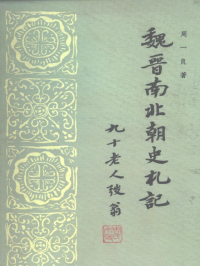 周一良著
魏晉南北朝史札記
九十老人稜翁